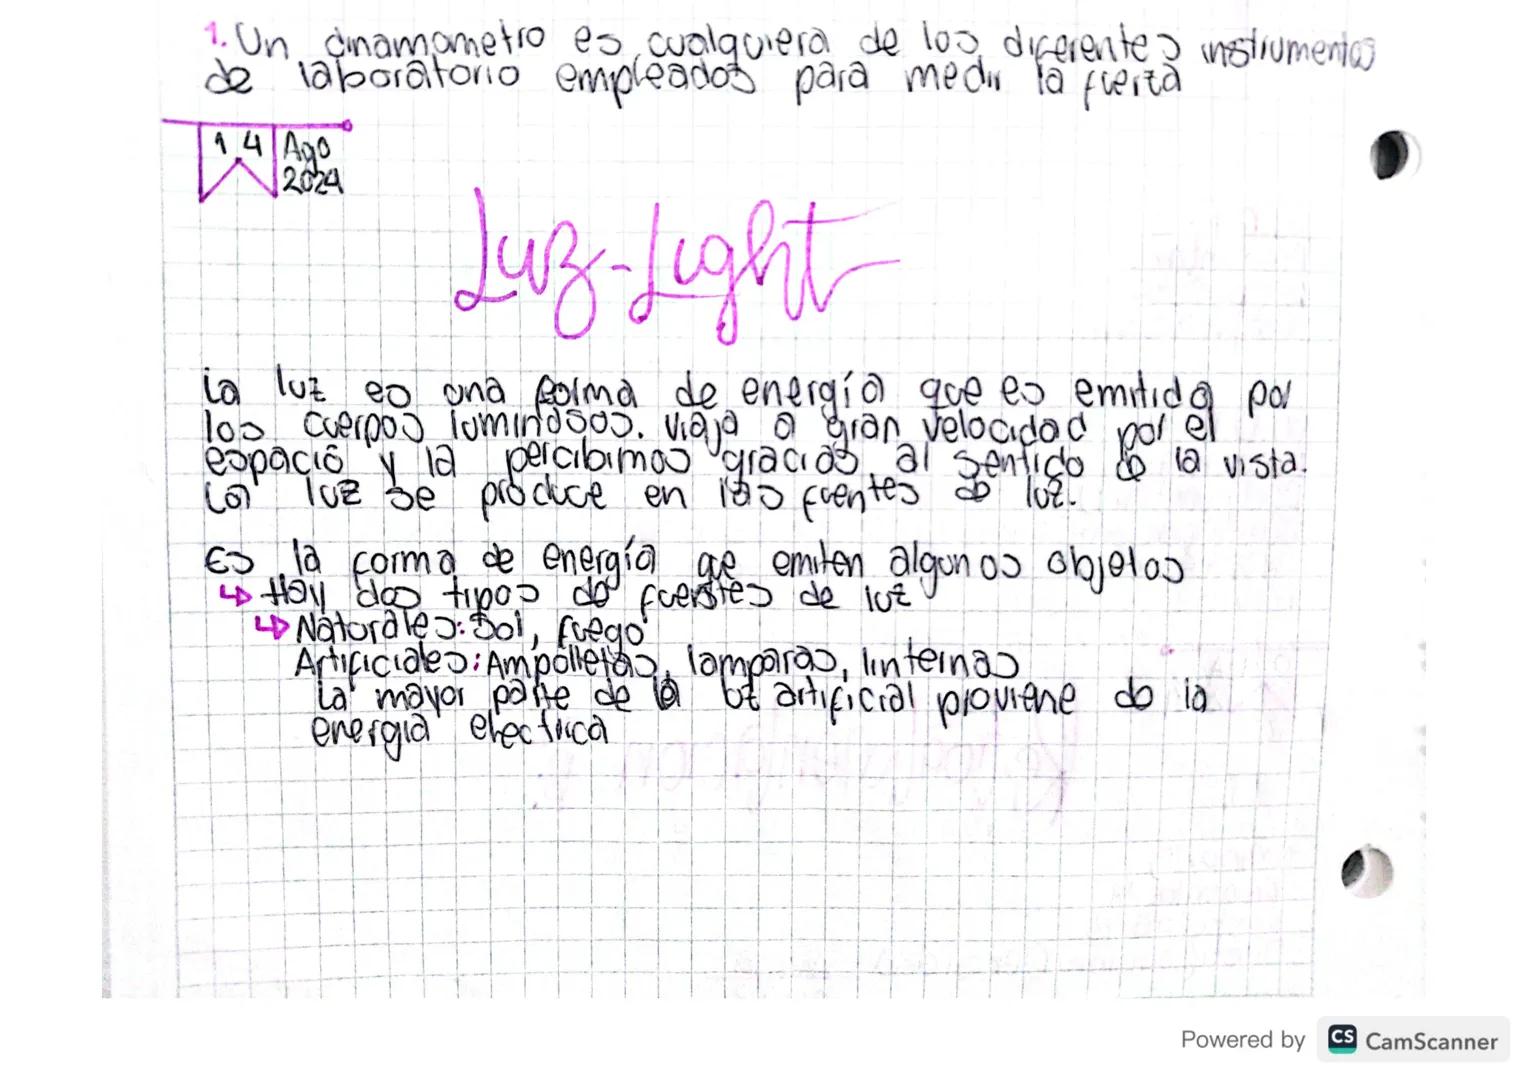 1. Un dinamometro es cualquiera de los diferentes instrumentos
de laboratorio empleados para medir la fuerza
14 Ago
2024
Luz-Light
La luz es una forma de energía que es emitida por
los cuerpos luminosos. viaja a gran velocidad por el
espacio y la percibimos gracias al sentido de la vista.
La luz se produce en las fuentes de luz.
Es la forma de energía que emiten algunos objetos
↳ Hay dos tipos de fuentes de luz
↳ Naturales: Sol, fuego
Artificiales: Ampolletas, lamparas, linternas
La mayor parte de la luz artificial proviene de la
energia electrica
Powered by CS CamScanner